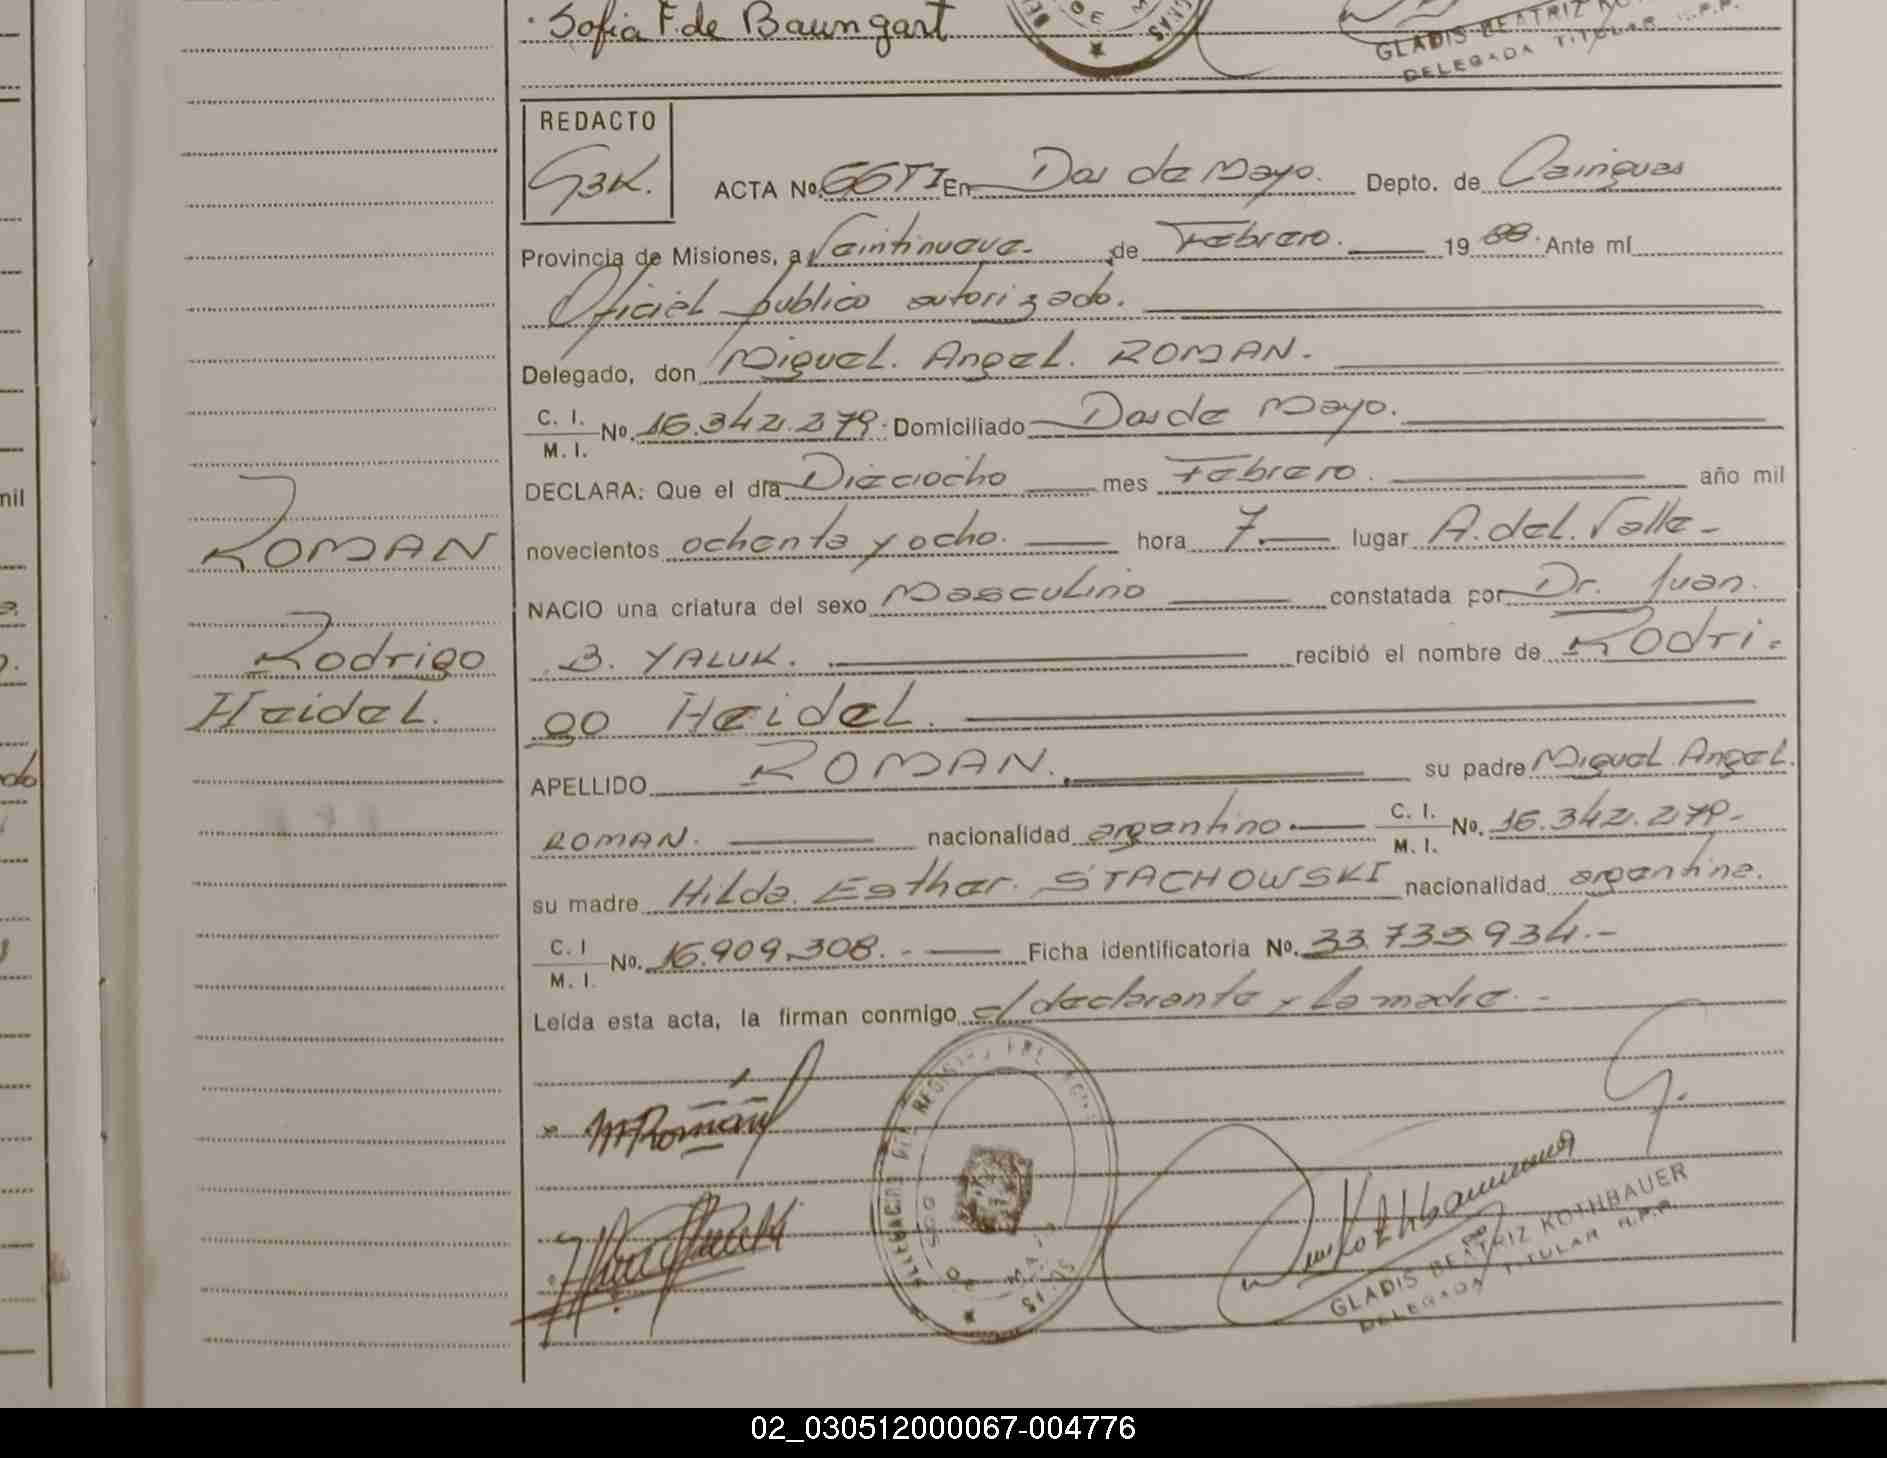 Sofia F. de Baungart
GLADIS BEATRIZ
DELEGADA TITULAR R.P.P.
REDACTO
GBK.
ACTA Nº. 66TI En Dos de Mayo. Depto. de Cainguas
Provincia de Misiones, a Veintinueve de Febrero. 19 88. Ante mí
Oficial publico autorizado.
Delegado, don Miguel. Angel. ROMAN.
C. I.
M. I. Nº. 16.342.279. Domiciliado Dos de Mayo.
DECLARA: Que el día Dieciocho mes Febrero. año mil
novecientos ochenta y ocho. hora 7. lugar A. del. Valle-
NACIO una criatura del sexo Masculino constatada por Dr. Juan.
B. YALUK. recibió el nombre de Rodri-
go Heidel.
APELLIDO ROMAN. su padre Miguel Angel.
ROMAN. nacionalidad argentino. C. I.
M. I. Nº. 16.342.279.-
su madre Hilda. Esther. STACHOWSKI nacionalidad argentina.
C. I
M. I. Nº. 16.909.308.- Ficha identificatoria Nº. 33.733.934.-
Leída esta acta, la firman conmigo el declarante y la madre.-
ROMAN
Rodrigo
Heidel.
MRomán
DELEGACION DEL REGISTRO
DOS DE MAYO
Kothbauer
GLADIS BEATRIZ KOTHBAUER
DELEGADA TITULAR R.P.P.
nil
02_030512000067-004776